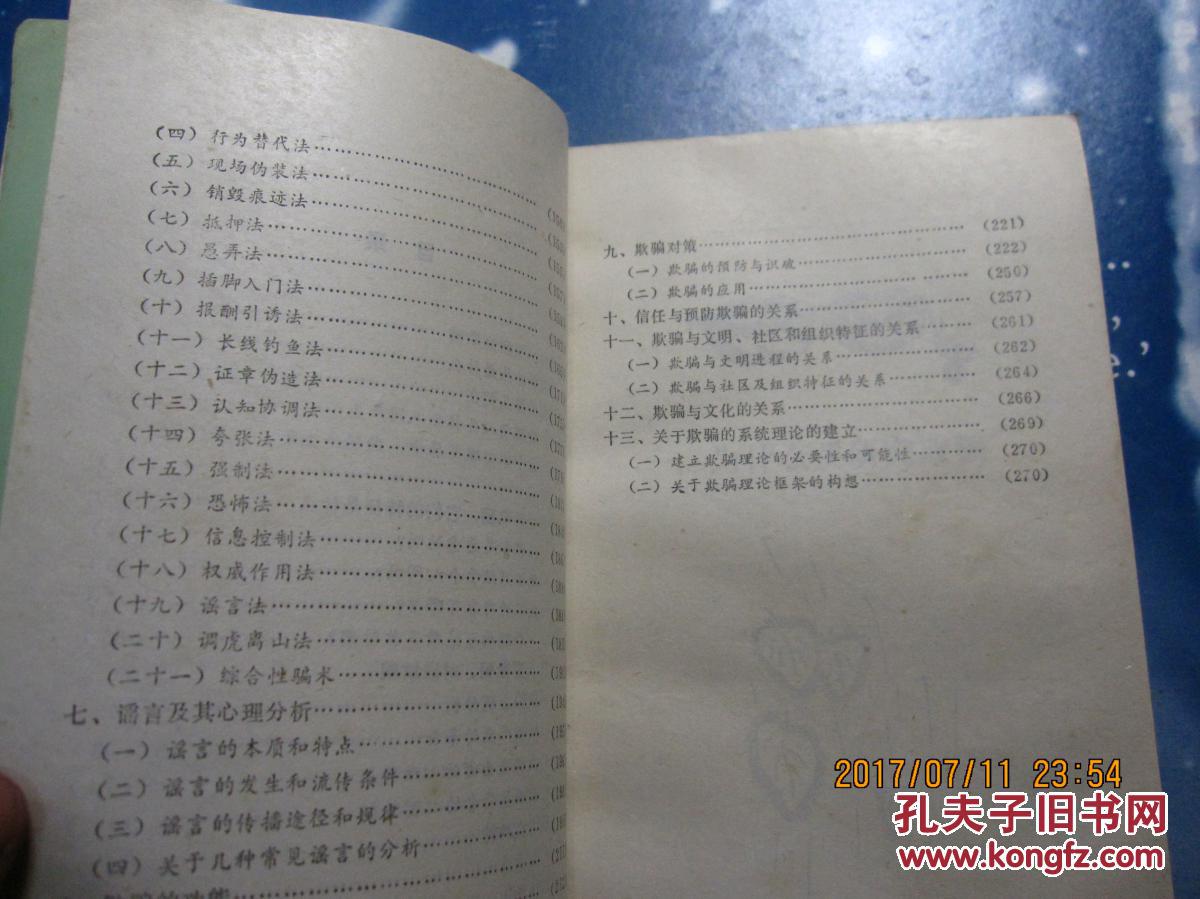 （四）行为替代法
（五）现场伪装法
（六）销毁痕迹法
（七）抵押法
（八）愚弄法
（九）插脚入门法
（十）报酬引诱法
（十一）长线钓鱼法
（十二）证章伪造法
（十三）认知协调法
（十四）夸张法
（十五）强制法
（十六）恐怖法
（十七）信息控制法
（十八）权威作用法
（十九）谣言法
（二十）调虎离山法
（二十一）综合性骗术
七、谣言及其心理分析
（一）谣言的本质和特点
（二）谣言的发生和流传条件
（三）谣言的传播途径和规律
（四）关于几种常见谣言的分析
九、欺骗对策……(221)
（一）欺骗的预防与识破……(222)
（二）欺骗的应用……(250)
十、信任与预防欺骗的关系……(257)
十一、欺骗与文明、社区和组织特征的关系……(261)
（一）欺骗与文明进程的关系……(262)
（二）欺骗与社区及组织特征的关系……(264)
十二、欺骗与文化的关系……(266)
十三、关于欺骗的系统理论的建立……(269)
（一）建立欺骗理论的必要性和可能性……(270)
（二）关于欺骗理论框架的构想……(270)
2017/07/11 23:54
孔夫子旧书网
www.kongfz.com